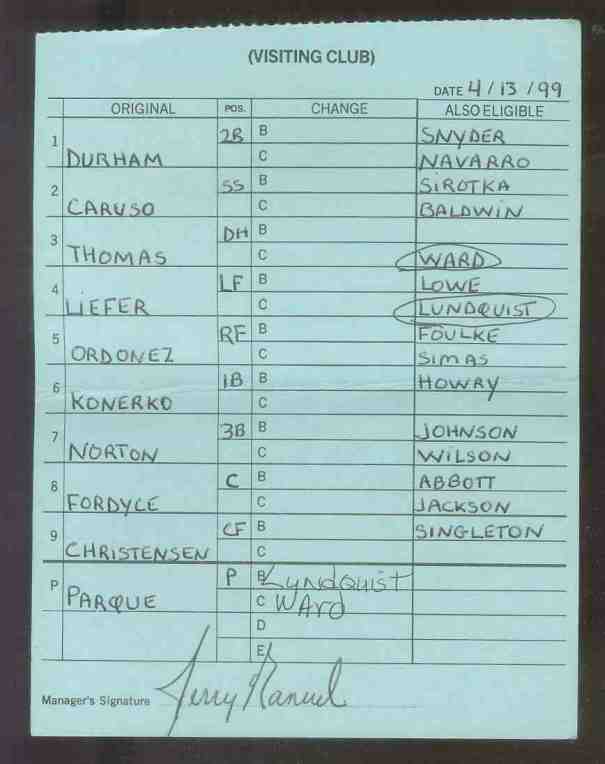 (VISITING CLUB)
DATE 4/13/99
ORIGINAL POS. CHANGE ALSO ELIGIBLE
1 2B B SNYDER
DURHAM C NAVARRO
2 SS B SIROTKA
CARUSO C BALDWIN
3 DH B
THOMAS C WARD
4 LF B LOWE
LIEFER C LUNDQUIST
5 RF B FOULKE
ORDONEZ C SIMAS
6 1B B HOWRY
KONERKO C
7 3B B JOHNSON
NORTON C WILSON
8 C B ABBOTT
FORDYCE C JACKSON
9 CF B SINGLETON
CHRISTENSEN C
P P B Lyndquist
PARQUE C WARD
D
E
Manager's Signature Jerry Manuel